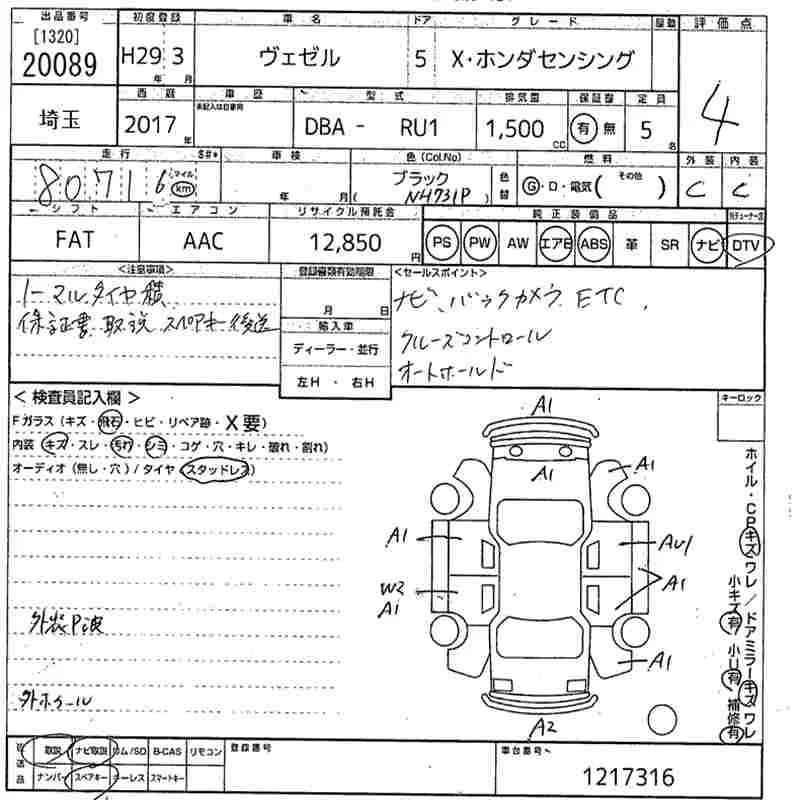 出品番号 初度登録 車名 ドア グレード 評価点
[1320]
20089 H29 年 3 月 ヴェゼル 5 X・ホンダセンシング 4
西暦 車歴 型式 排気量 保証書 定員
未記入は自家用
埼玉 2017年 DBA - RU1 1,500 CC 有 無 5 名
走行 $#* 車検 色(Col.No) 燃料 外装 内装
80716 マイル km 年 月 ブラック 色替 G・D・電気( その他 ) C C
( N4731P )
シフト エアコン リサイクル預託金 純正装備品
FAT AAC 12,850円 PS PW AW エアB ABS 革 SR ナビ DTV
<注意事項> <セールスポイント>
ノーマルタイヤ積 ナビ、バックカメラ ETC、
月 日
保証書 取説 スペアキー後送 輸入車 クルーズコントロール
ディーラー・並行 オートホールド
左H ・ 右H
< 検査員記入欄 > キーロック
Fガラス (キズ・飛石・ヒビ・リペア跡・X要)
内装 (キズ・スレ・汚れ・シミ・コゲ・穴・キレ・破れ・割れ)
オーディオ (無し・穴) / タイヤ (スタッドレス)
A1
A1 A1
A1 AU1
W2 A1
A1
外装P波
A1
外ホイール
A2
ホイル・CPキズワレ/ドアミラーキズワレ
小キズ有 小U有 補修有
取説 ナビ取説 ロム/SD B-CAS リモコン 登録番号 車台番号
ナンバー スペアキー キーレス スマートキー 1217316